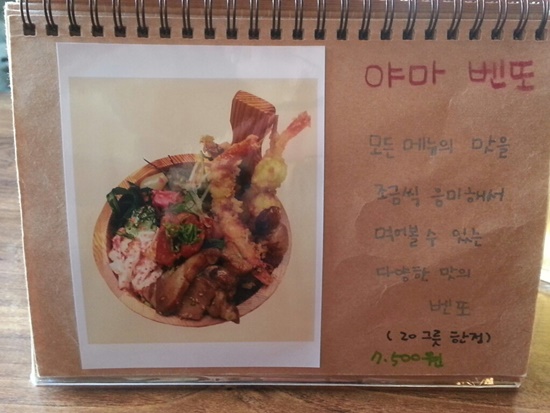 야마 벤또
모든 메뉴의 맛을
조금씩 음미해서
먹어볼 수 있는
다양한 맛의
벤또
(20그릇 한정)
7.500원